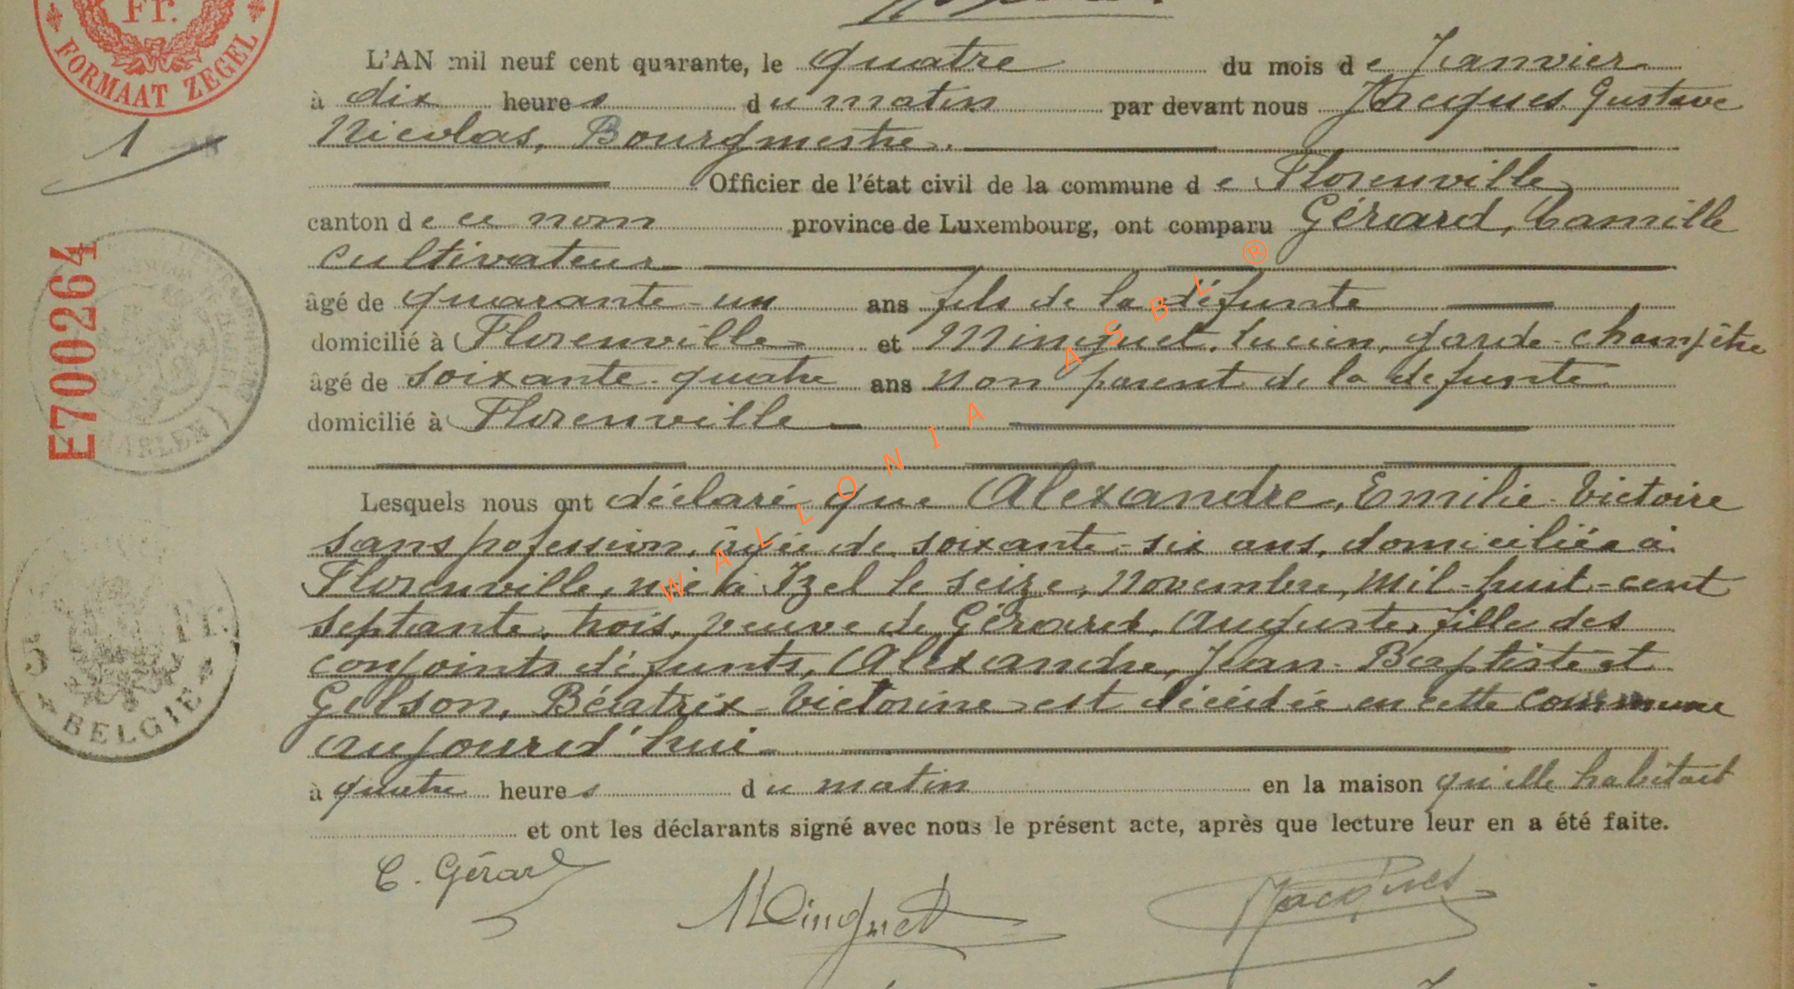 Fr.
FORMAAT ZEGEL
L'AN mil neuf cent quarante, le quatre du mois de Janvier
à dix heures du matin par devant nous Jacques Gustave
1
Nicolas, Bourgmestre.
Officier de l'état civil de la commune de Florenville
canton de ce nom province de Luxembourg, ont comparu Gérard, Camille
cultivateur
âgé de quarante-un ans fils de la défunte
domicilié à Florenville et Minguet, Lucien, garde-champêtre
âgé de soixante-quatre ans non parent de la défunte
domicilié à Florenville
E700264
HAARLEM
WALLONIA ASBL ®
Lesquels nous ont déclaré que Alexandre, Emilie-Victoire
sans profession, âgée de soixante-six ans, domiciliée à
Florenville, née à Izel le seize, novembre, mil-huit-cent
septante, trois, veuve de Gérard, Auguste, fille des
conjoints défunts, Alexandre, Jean-Baptiste et
Gelson, Béatrix-Victorine est décédée en cette commune
aujourd'hui
5 Fr.
BELGIE
à quatre heures du matin en la maison qu'elle habitait
et ont les déclarants signé avec nous le présent acte, après que lecture leur en a été faite.
C. Gérard
Minguet
Jacques